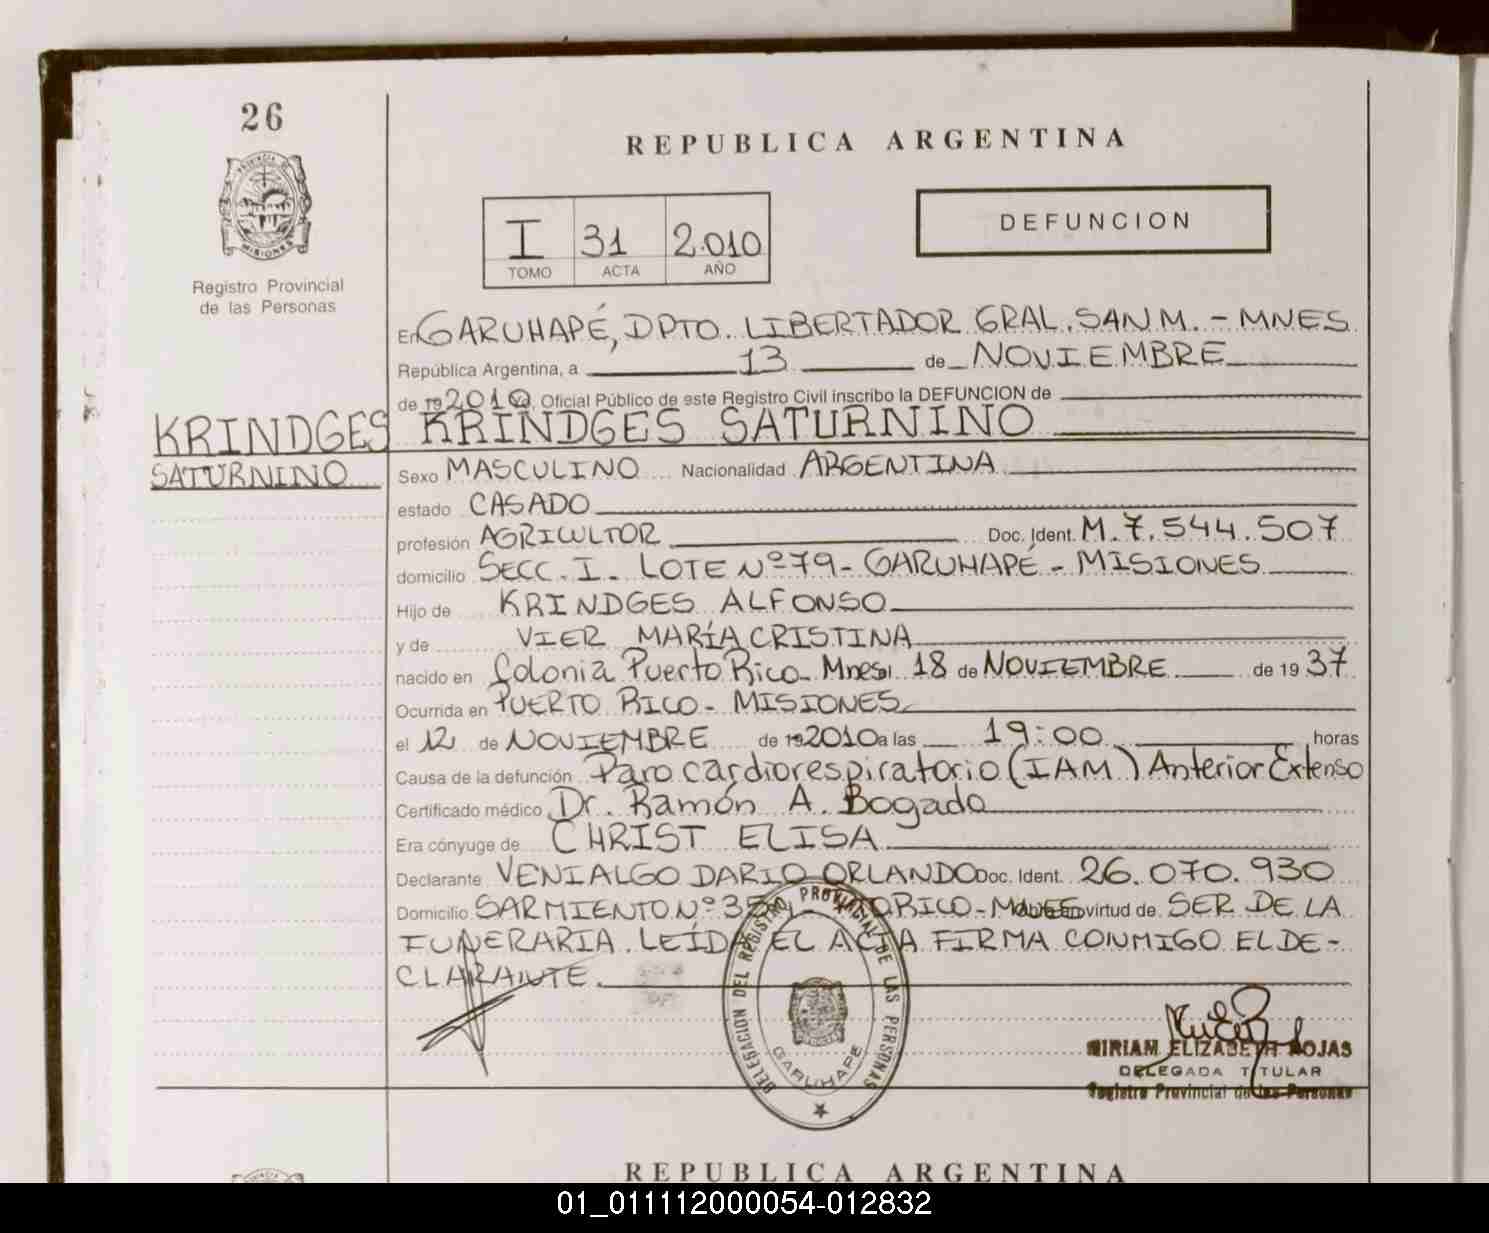 26
PROVINCIA DE
MISIONES
Registro Provincial
de las Personas
REPUBLICA ARGENTINA
I 31 2.010
TOMO ACTA AÑO
DEFUNCION
En GARUHAPÉ, DPTO. LIBERTADOR GRAL. SAN M. - MNES
República Argentina, a 13 de NOVIEMBRE
de 19 2010, Oficial Público de este Registro Civil inscribo la DEFUNCION de
KRINDGES KRINDGES SATURNINO
SATURNINO
Sexo MASCULINO Nacionalidad ARGENTINA
estado CASADO
profesión AGRICULTOR Doc. Ident. M. 7.544.507
domicilio SECC. I. LOTE Nº 79 - GARUHAPÉ - MISIONES
Hijo de KRINDGES ALFONSO
y de VIER MARÍA CRISTINA
nacido en Colonia Puerto Rico - Mnes 18 de NOVIEMBRE de 19 37
Ocurrida en PUERTO RICO - MISIONES
el 12 de NOVIEMBRE de 19 2010 a las 19:00 horas
Causa de la defunción Paro cardiorespiratorio (IAM) Anterior Extenso
Certificado médico Dr. Ramón A. Bogado
Era cónyuge de CHRIST ELISA
Declarante VENIALGO DARIO ORLANDO Doc. Ident. 26.070.930
Domicilio SARMIENTO Nº RICO - MNES virtud de SER DE LA
FUNERARIA. LEÍDA EL ACTA FIRMA CONMIGO EL DE-
CLARANTE.
DELEGACION DEL REGISTRO PROVINCIAL DE LAS PERSONAS
GARUHAPE
MIRIAM ELIZABETH ROJAS
DELEGADA TITULAR
Registro Provincial de las Personas
REPUBLICA ARGENTINA
01_011112000054-012832